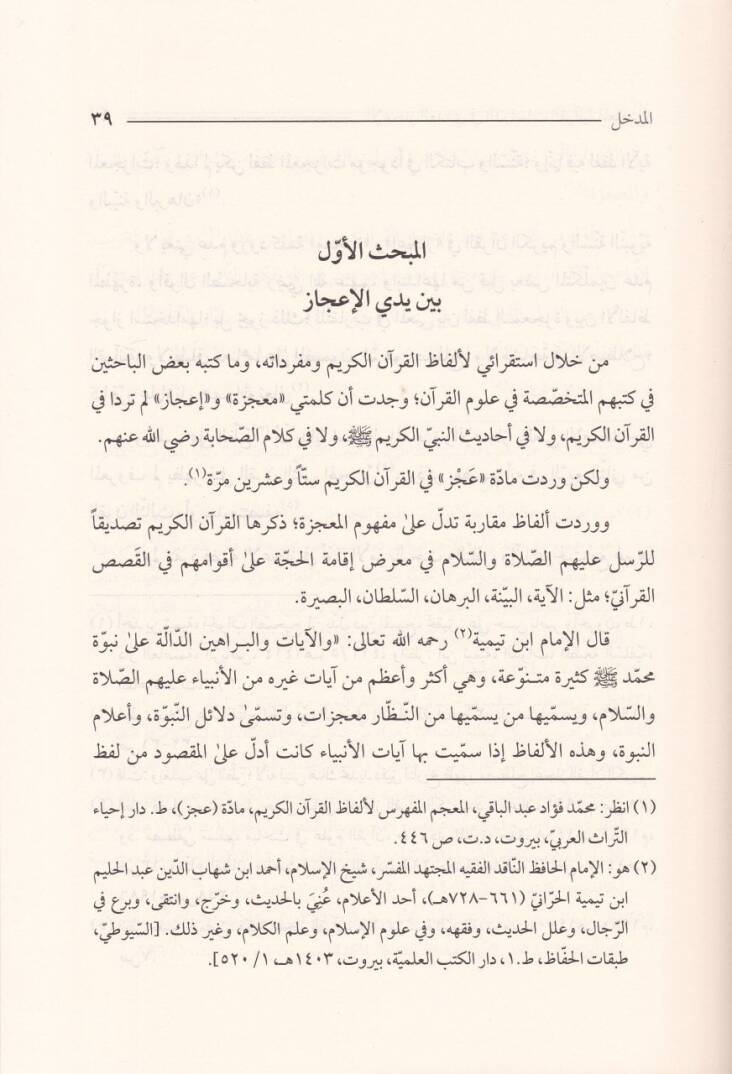 المدخل ٣٩
المبحث الأوّل
بين يدي الإعجاز
من خلال استقرائي لألفاظ القرآن الكريم ومفرداته، وما كتبه بعض الباحثين
في كتبهم المتخصّصة في علوم القرآن؛ وجدت أن كلمتي «معجزة» و«إعجاز» لم تردا في
القرآن الكريم، ولا في أحاديث النبيّ الكريم ﷺ، ولا في كلام الصّحابة رضي الله عنهم.
ولكن وردت مادّة «عَجْز» في القرآن الكريم ستّاً وعشرين مرّة(١).
ووردت ألفاظ مقاربة تدلّ علىٰ مفهوم المعجزة؛ ذكرها القرآن الكريم تصديقاً
للرّسل عليهم الصّلاة والسّلام في معرض إقامة الحجّة علىٰ أقوامهم في القَصص
القرآنيّ؛ مثل: الآية، البيّنة، البرهان، السّلطان، البصيرة.
قال الإمام ابن تيمية(٢) رحمه الله تعالى: «والآيات والبراهين الدّالّة علىٰ نبوّة
محمّد ﷺ كثيرة متنوّعة، وهي أكثر وأعظم من آيات غيره من الأنبياء عليهم الصّلاة
والسّلام، ويسمّيها من يسمّيها من النّظّار معجزات، وتسمّىٰ دلائل النّبوّة، وأعلام
النبوة، وهذه الألفاظ إذا سمّيت بها آيات الأنبياء كانت أدلّ علىٰ المقصود من لفظ
(١) انظر: محمّد فؤاد عبد الباقي، المعجم المفهرس لألفاظ القرآن الكريم، مادّة (عجز)، ط. دار إحياء
التّراث العربيّ، بيروت، د.ت، ص ٤٤٦.
(٢) هو: الإمام الحافظ النّاقد الفقيه المجتهد المفسّر، شيخ الإسلام، أحمد ابن شهاب الدّين عبد الحليم
ابن تيمية الحرّانيّ (٦٦١-٧٢٨هـ)، أحد الأعلام، عُنِيَ بالحديث، وخرّج، وانتقى، وبرع في
الرّجال، وعلل الحديث، وفقهه، وفي علوم الإسلام، وعلم الكلام، وغير ذلك. [السّيوطيّ،
طبقات الحفّاظ، ط.١، دار الكتب العلميّة، بيروت، ١٤٠٣هـ، ١/ ٥٢٠].